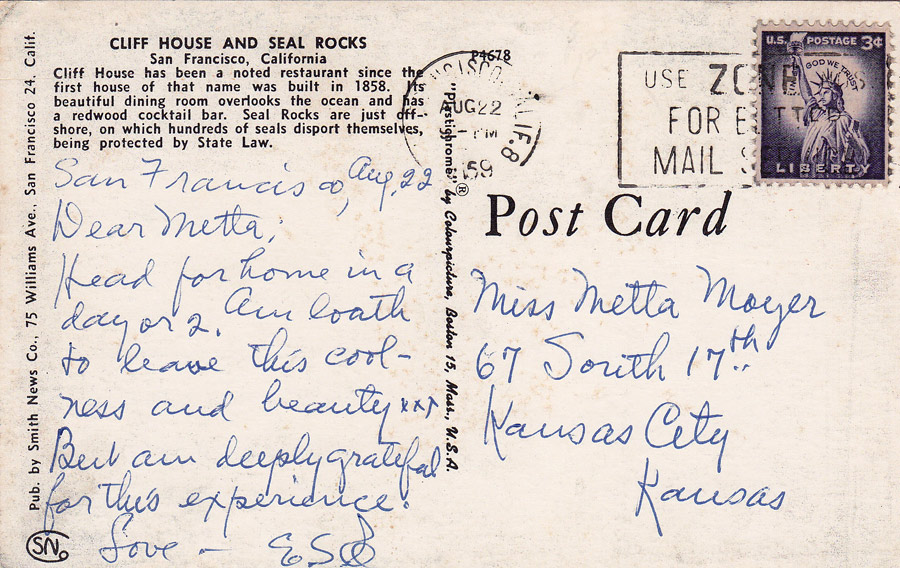 CLIFF HOUSE AND SEAL ROCKS
San Francisco, California
Cliff House has been a noted restaurant since the
first house of that name was built in 1858. Its
beautiful dining room overlooks the ocean and has
a redwood cocktail bar. Seal Rocks are just off-
shore, on which hundreds of seals disport themselves,
being protected by State Law.
San Francisco, Aug, 22
Dear Metta;
Head for home in a
day or 2. Am loath
to leave this cool-
ness and beauty xxx
But am deeply grateful
for this experience.
Love –
Pub. by Smith News Co., 75 Williams Ave., San Francisco 24, Calif.
SN
P4678
"Plastichrome"® by Colourpicture, Boston 15, Mass., U.S.A.
CISCO, CALIF. 8
AUG 22
PM
1959
USE ZONE
FOR BETTE
MAIL S
U.S. POSTAGE 3¢
IN GOD WE TRUST
LIBERTY
Post Card
Miss Metta Moyer
67 South 17th
Kansas City
Kansas